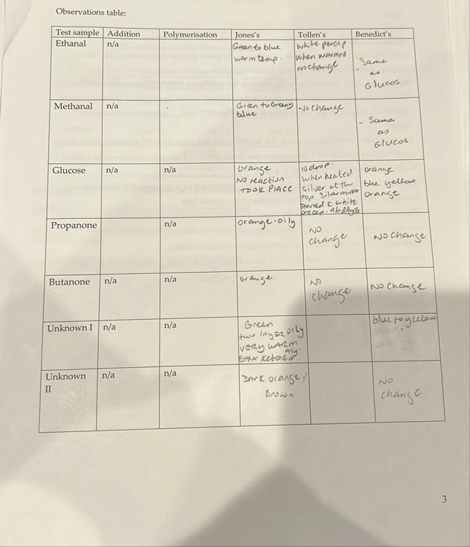 Observations table:
Test sample Addition Polymerisation Jones's Tollen's Benedict's
Ethanal n/a
Green to blue
warm temp.
white percip
when warmed
no change
- Same
as
Glucos
Methanal n/a
Green to Green
blue
No change
- Same
as
Glucos
Glucose n/a n/a
orange
No reaction
TOOK PlACE
10 drop -
when heated
silver at the
top silar mirror
white
orange
blue yellow
orange
Propanone n/a
orange - oily
NO
change
No change
Butanone n/a n/a
orange
NO
change
No change
Unknown I n/a n/a
Green
two layer oily
very warm
blue to yellow
Unknown
II
n/a n/a
DArk orange /
Brown
NO
change
3